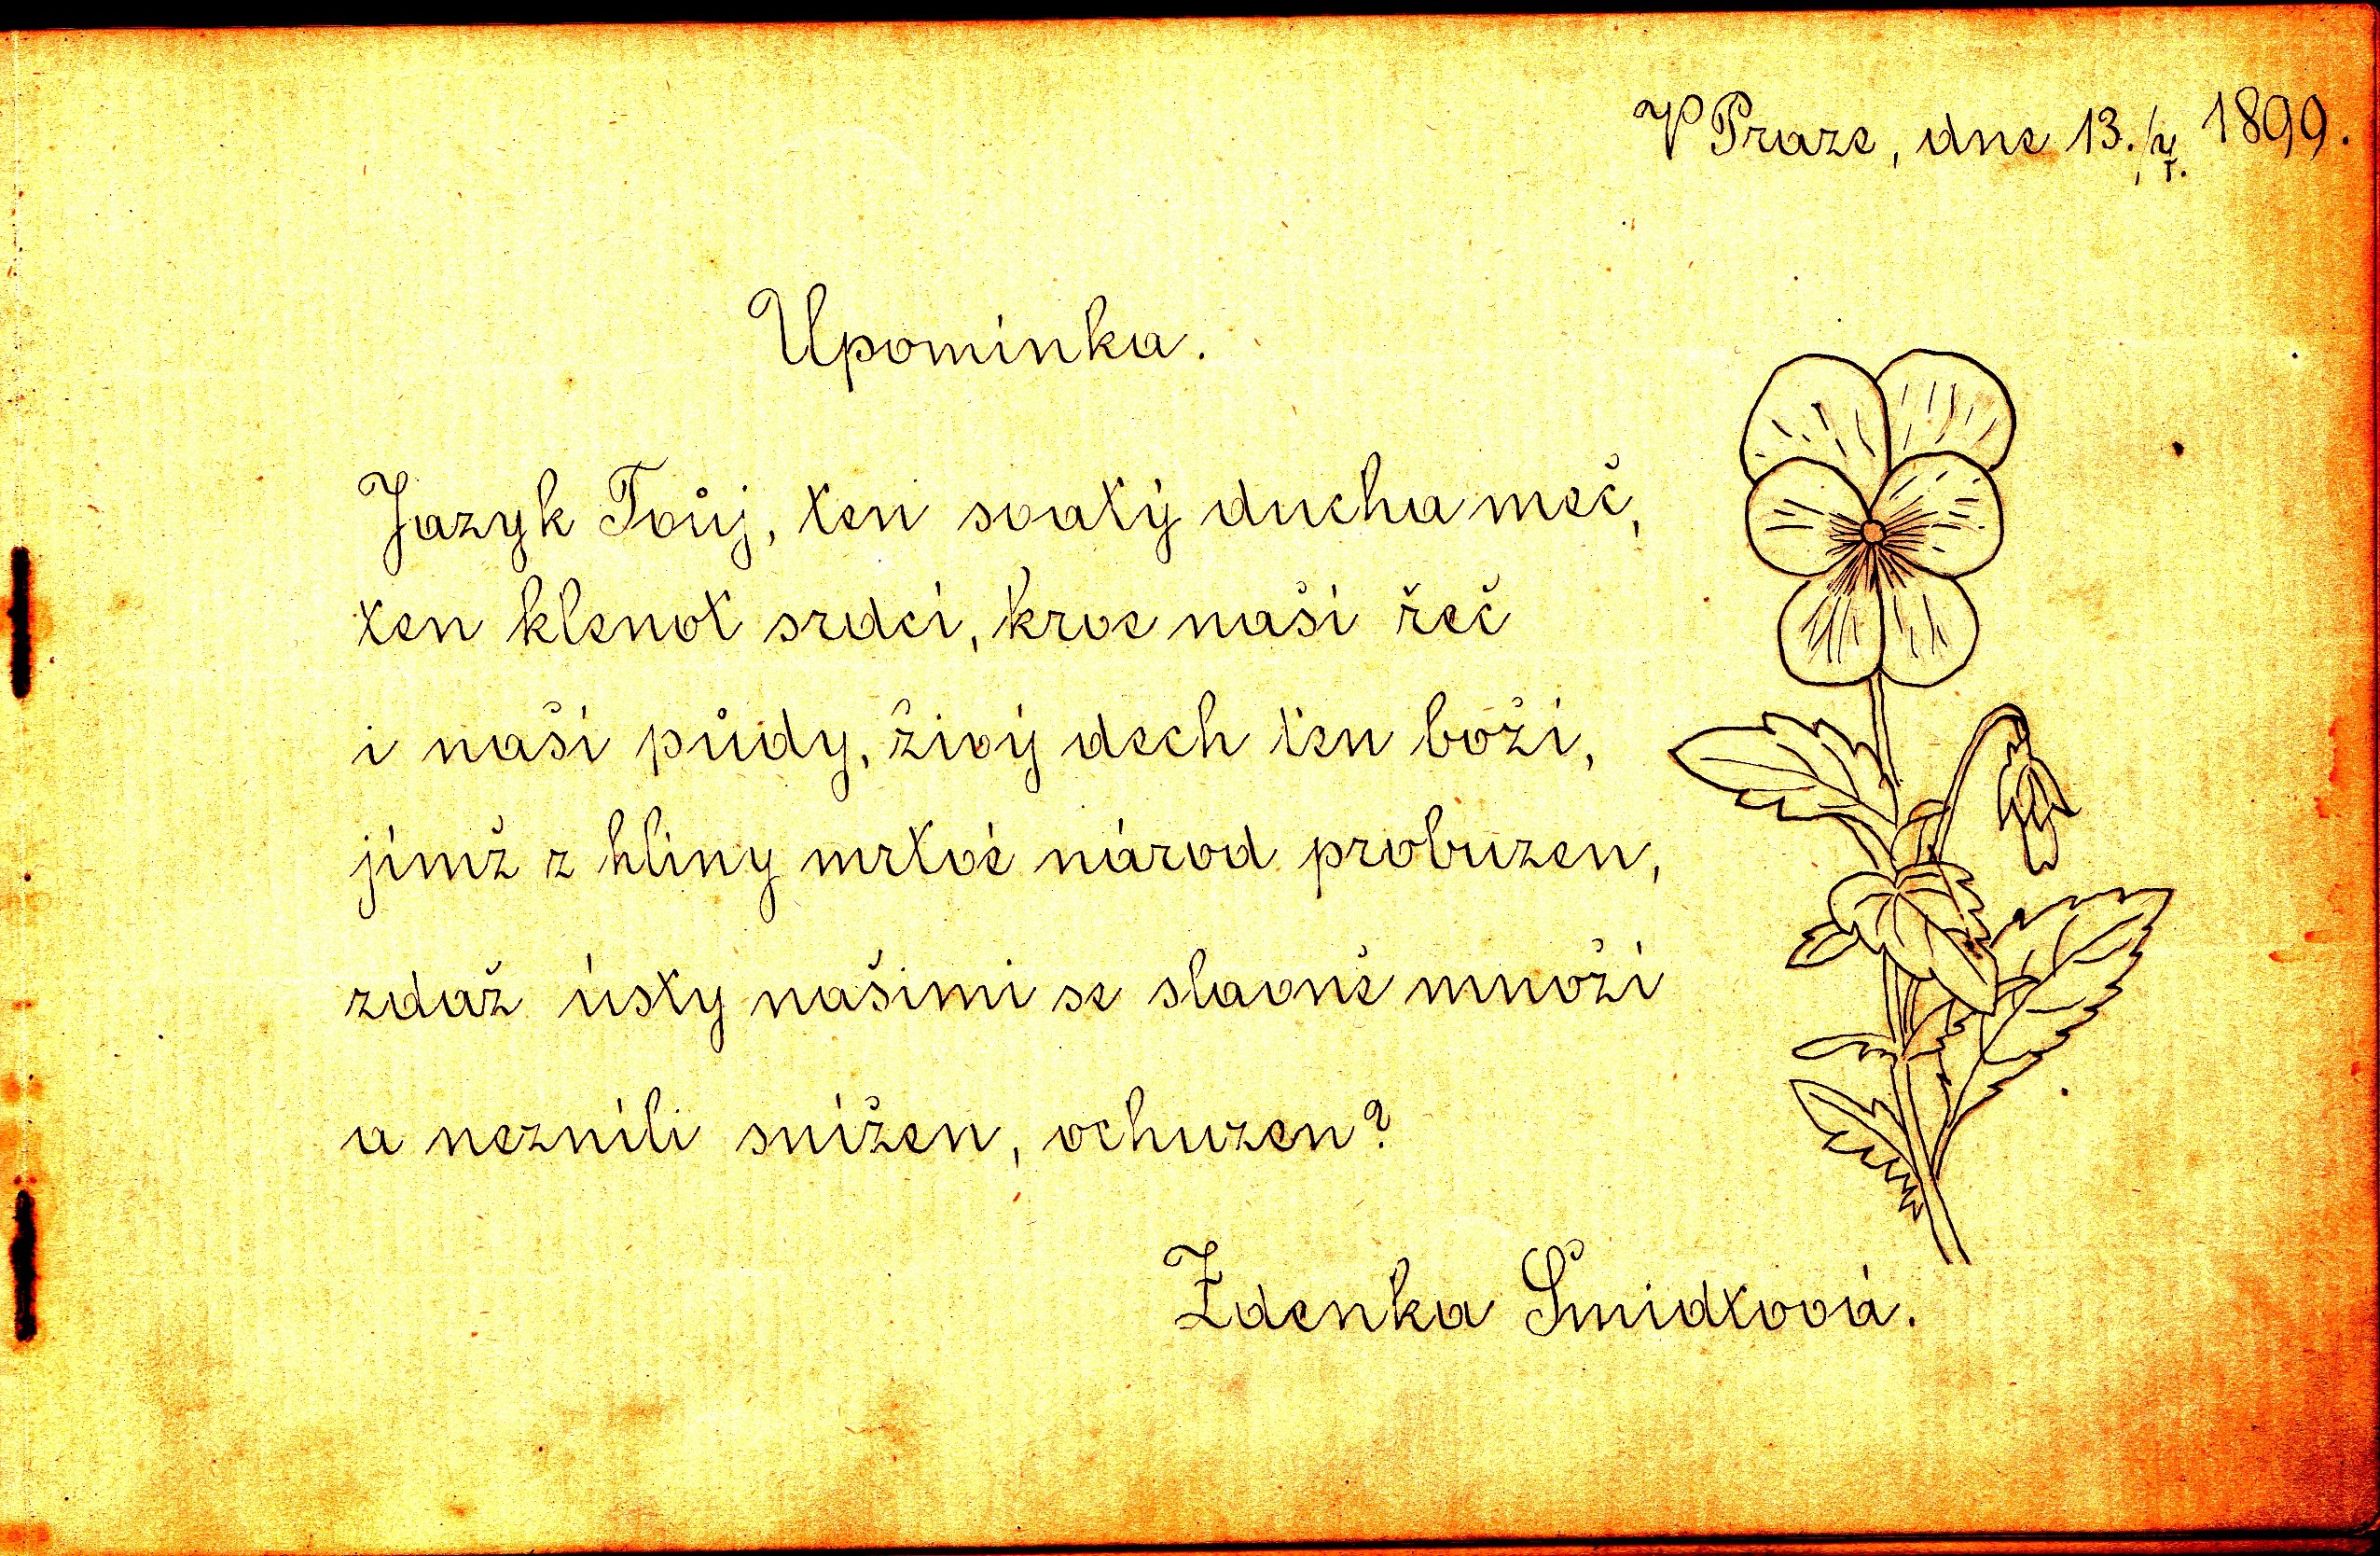 V Praze, dne 13./4. 1899.
Upomínka.
Jazyk Tvůj, ten svatý ducha meč,
ten klenot srdcí, krve naší řeč
i naší půdy, živý dech ten boží,
jímž z hlíny mrtvé národ probuzen,
zdaž ústy našimi se slavně množí
a nezníli snížen, ochuzen?
Zdenka Šmidtová.